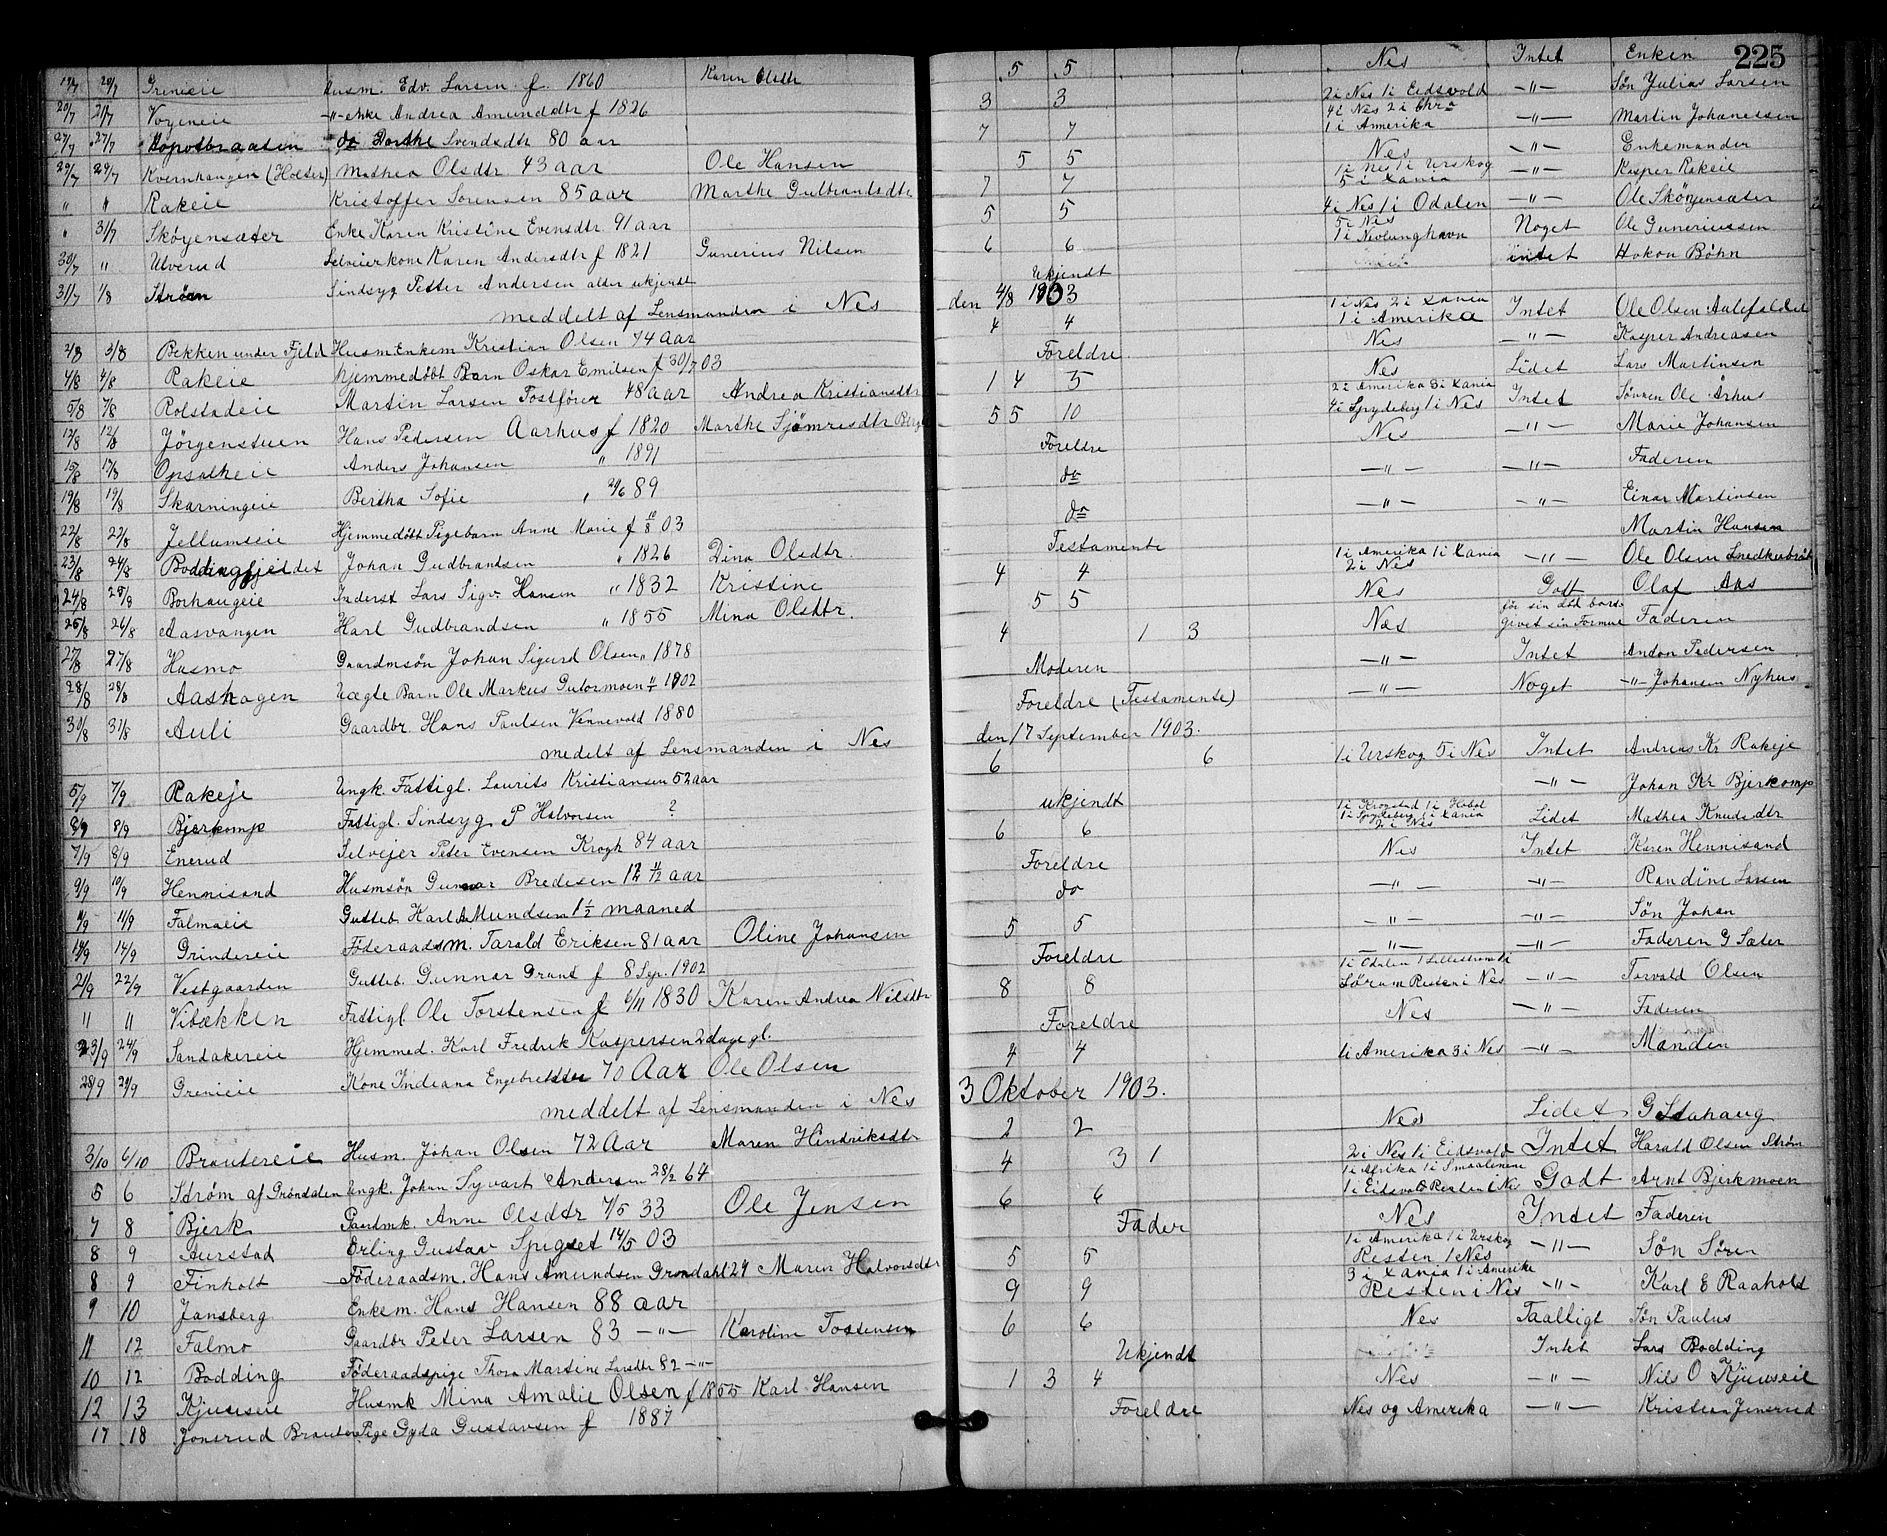 225
19/7 20/7 Grenieie Husm. Edv. Larsen f. 1860 Karen Olsdtr 5 5 Nes Intet Enken
20/7 21/7 Vogneie -"- enke Andrea Amunddtr f 1826 3 3 2 i Nes 1 i Eidsvold -"- Søn Julius Larsen
27/7 27/7 do Dorthe Svendsdtr 80 aar 7 7 4 i Nes 2 i Chra 1 i Amerika -"- Martin Johanessen
29/7 29/7 Kvernhaugen (Holter) Mathea Olsdtr. 43 aar Ole Hansen 5 5 Nes -"- Enkemanden
" " Rakeie Kristoffer Sorensen 85 aar Marthe Gulbrandsdtr 7 7 1 i Nes 1 i Urskog 5 i Xania -"- Kasper Rakeie
" 31/7 Skøyensæter Enke Karen Kristine Evensdtr. 91 aar 5 5 4 i Nes 1 i Odalen -"- Ole Skøyensæter
30/7 " Ulverud Selveierkone Karen Andersdtr f 1821 Gunerius Nilsen 6 6 5 i Nes 1 i Nevlunghavn Noget Ole Guneriussen
31/7 1/8 Strøm Sindsyg Petter Andersen alder ukjendt Ukjendt intet Hakon Bøhn
meddelt af Lensmanden i Nes den 4/8 1903
2/8 3/8 Bekken under Fjeld Husm. Enkem. Kristian Olsen 74 aar 4 4 1 i Nes 2 i Xania 1 i Amerika Intet Ole Olsen
4/8 4/8 Rakeie hjemmedöbt Barn Oskar Emilsen f 30/7 03 Foreldre Nes -"- Kasper Andreasen
5/8 7/8 Rolstadeie Martin Larsen 48 aar Andrea Kristiansdtr 1 4 5 Nes Lidet Lars Martinsen
12/8 12/8 Jörgenstuen Hans Pedersen Aarhus f 1820 Marthe 5 5 10 2 i Amerika 3 i Xania 4 i Spydeberg 1 i Nes Intet Sönnen Ole Århus
15/8 17/8 Opsalheie Anders Johansen " 1891 Foreldre Nes -"- Marie Johansen
19/8 19/8 Skarningeie Bertha Sofie " 2/6 89 do -"- -"- Faderen
22/8 23/8 Jellumseie Hjemmedöbt Pigebarn Anne Marie f 10/8 03 do -"- -"- Einar Martinsen
23/8 24/8 Boddingfjeldet Johan Gudbrandsen " 1826 Dina Olsdtr. Testamente Martin Hansen
24/8 28/8 Borhaugeie Inderst Lars Sigv. Hansen " 1832 Kristine 4 4 1 i Amerika 1 i Xania 2 i Nes -"- Ole Olsen
25/8 26/8 Aasvangen Karl Gudbrandsen " 1855 Mina Olsdtr. 5 5 Nes Godt Olaf Aas
27/8 27/8 Husmo Gaardmsön Johan Sigurd Olsen " 1878 4 1 3 Nes för sin död bort- givet sin Formue Faderen
28/8 28/8 Aashagen Uægte Barn Ole Markus Gutormoen " 1902 Moderen -"- Intet Anton Pedersen
30/8 31/8 Auli Gaardbr. Hans Paulsen Vennevold 1880 Foreldre (Testamente) -"- Noget -"- Johansen Nyhus
medelt af Lensmanden i Nes den 17 September 1903.
5/9 7/9 Rakeje Ungk. Fattigl. Laurits Kristiansen 52 aar 6 6 1 i Urskog 5 i Nes Intet Andreas Kr Rakeje
8/9 Bjerkomp Fattigl. Sindsyg P Halvorsen ? ukjendt -"- Johan Kr Bjerkomp
7/9 8/9 Enerud Selvejer Peter Evensen Krogh 84 aar 6 6 1 i Krogstad 1 i Hobøl 1 i Spydeberg 1 i Xania 2 i Nes Lidet Mathea Knudsdtr
9/9 10/9 Hennisand Husmsön Gunnar Bredesen 12 11/12 aar Foreldre Nes Intet Karen Hennisand
11/9 11/9 Falmoeie Gutteb Karl AMundsen 1 1/2 maaned do -"- -"- Randine Larsen
14/9 14/9 Grindereie Föderaadsm. Tarald Eriksen 81 aar Oline Johansen 5 5 -"- -"- Søn Johan
21/9 22/9 Vestgaarden Gutteb. Gunnar Grant f 8 Sep. 1902 Foreldre -"- -"- Faderen G Sæter
" " Vibækken Fattigl Ole Torstensen f 6/11 1830 Karen Andrea Nilsdtr 8 8 1 i Odalen 1 Lillestrøm Sörum Resten i Nes -"- Torvald Olsen
23/9 24/9 Sandakereie Hjemmed. Karl Fredrik Kaspersen 2 dage gl. Foreldre Nes -"- Faderen
28/9 29/9 Grenieie Kone Indiana Engebretsdtr 70 Aar Ole Olsen 4 4 1 i Amerika 3 i Nes -"- Manden
meddelt af Lensmanden i Nes 3 Oktober 1903.
3/10 6/10 Brautereie Husm. Johan Olsen 72 Aar Maren Hindriksdtr 2 2 Nes Lidet G Stahaug
5 6 Strøm af Grøndalen Ungk. Johan Syvart Andersen 28/2 64 4 3 1 2 i Nes 1 i Eidsvold Intet Harald Olsen Strøm
7 8 Bjerk Gaardmk. Anne Olsdtr 7/5 33 Ole Jensen 6 6 1 i Afrika 1 i Smaalenene 1 i Eidsvold Resten i Nes Godt Arnt Bjerkmoen
8 9 Aurstad Erling Gustav Spigset 14/5 03 Fader Nes Intet Faderen
8 9 Finholt Föderaadsm. Hans Amundsen Grøndahl 24 Maren Halvorsdtr 5 5 1 i Amerika 1 i Urskog Resten i Nes -"- Søn Søren
9 10 Jansberg Enkem. Hans Hansen 88 aar 9 9 3 i Xania 1 i Amerika Resten i Nes -"- Karl E Raahold
11 12 Falmo Gaardbr Peter Larsen 83 -"- Karoline Tostensen 6 6 Nes Taalligt Søn Paulus
10 12 Bodding Föderaadspige Thora Martine Larsdtr 82 -"- Ukjendt Intet Lars Bodding
12 13 Kjuuseie Husmk Mina Amalie Olsen f 1855 Karl Hansen 1 3 4 Nes -"- Nils O Kjuuseie
17 18 Jonsrud Brauten Pige Gyda Gustavsen f 1887 Foreldre Nes og Amerika -"- Kristian Jonsrud